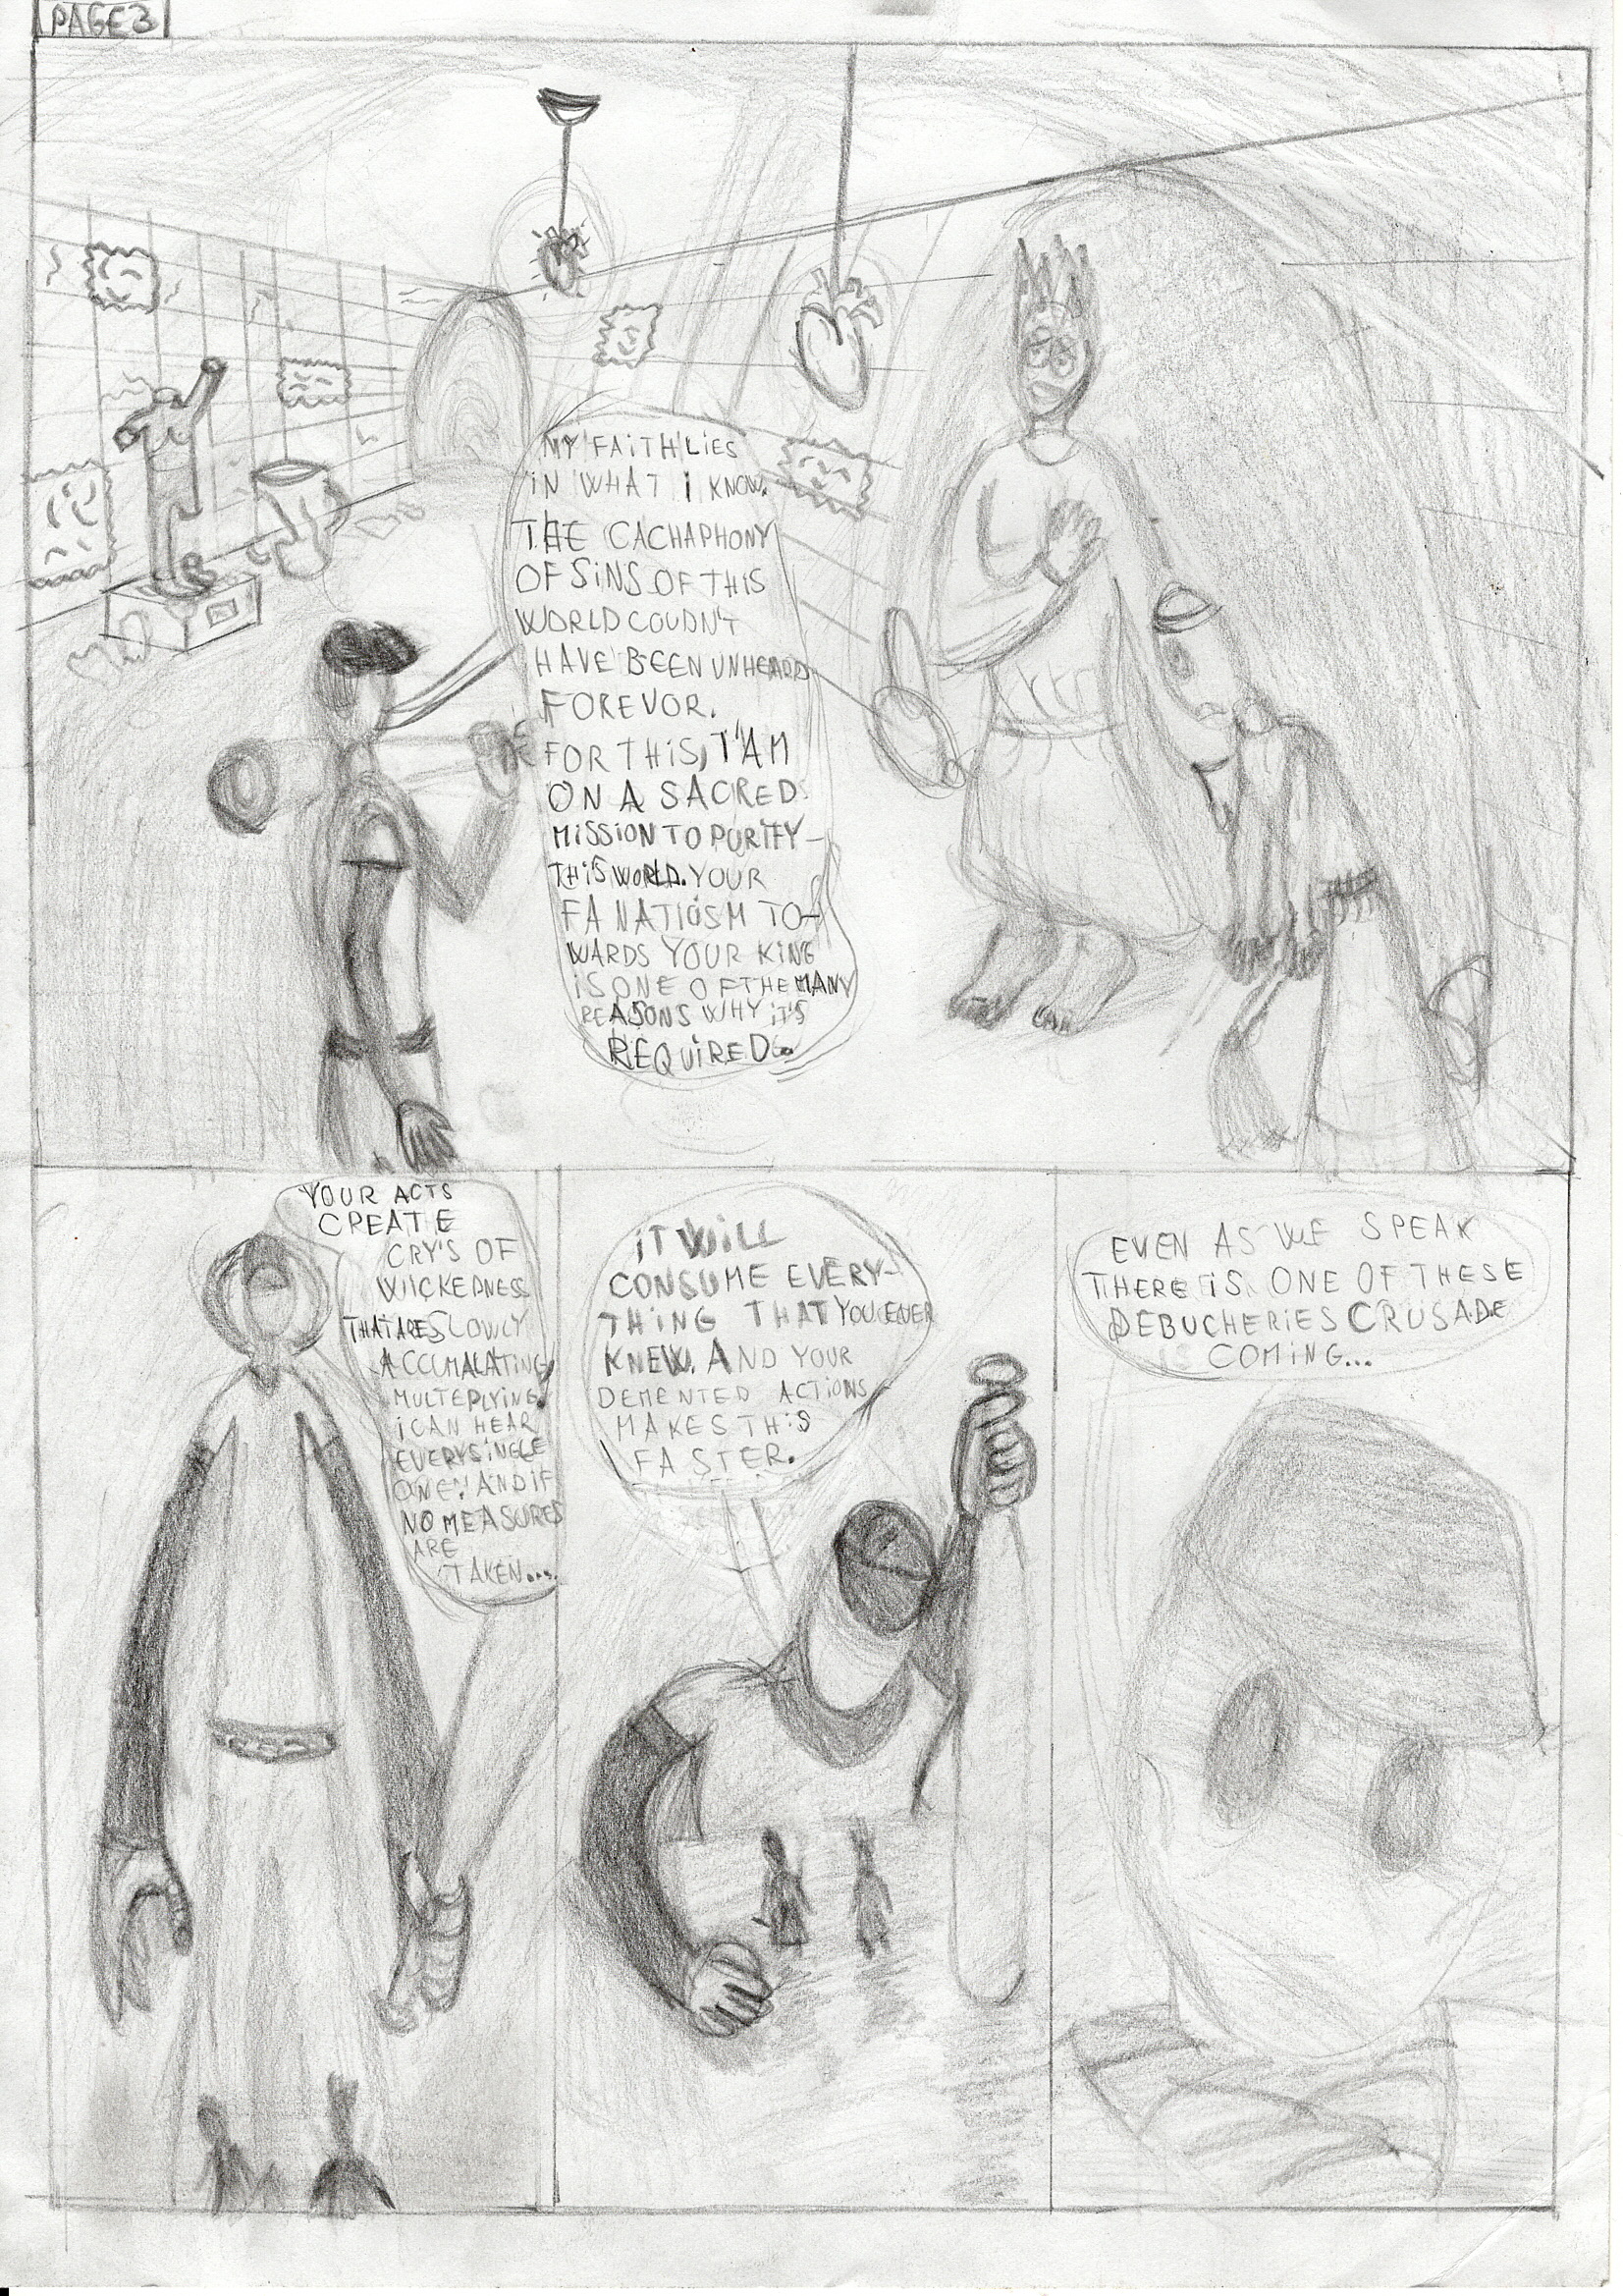 PAGE 3
MY FAITH LIES
IN WHAT I KNOW.
THE CACHAPHONY
OF SINS OF THIS
WORLD COUDN'T
HAVE BEEN UNHEARD
FOREVOR.
FOR THIS, I'AM
ON A SACRED
MISSION TO PURIFY
THIS WORLD. YOUR
FANATICISM TO-
WARDS YOUR KING
IS ONE OF THE MANY
REASONS WHY IT'S
REQUIRED..
YOUR ACTS
CREATE
CRY'S OF
WICKEDNESS
THAT ARE SLOWLY
ACCUMALATING,
MULTEPLYING.
I CAN HEAR
EVERY SINGLE
ONE. AND IF
NO MEASURES
ARE
TAKEN...
IT WILL
CONSUME EVERY-
THING THAT YOU EVER
KNEW. AND YOUR
DEMENTED ACTIONS
MAKES THIS
FASTER.
EVEN AS WE SPEAK
THERE IS ONE OF THESE
DEBUCHERIES CRUSADE
COMING...